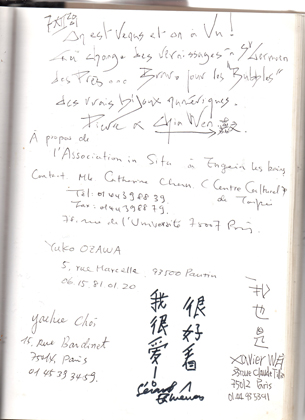 On est Venus et on a Vu !
Ça change des Vernissages à St Germain
des Prés ... Bravo pour les "Bubbles"
des vrais bijoux numériques.
Pierre & Chin Wen
À propos de
l'Association in Situ à Enghien les bains
Contact Mlle Catherine Chen (Centre Culturel de Taipei
Tél : 01 44 39 88 39.
Fax : 01 44 39 88 79.
78, rue de l'Université 75007 Paris.
Yuko OZAWA
5, rue Marcelle 93500 Pantin
06.15.81.01.20
我很愛
很好看
我也是
Choi
15, Rue Bardinet
75014 Paris
01 45 39 34 59.
Gérard
Xavier
75012 Paris